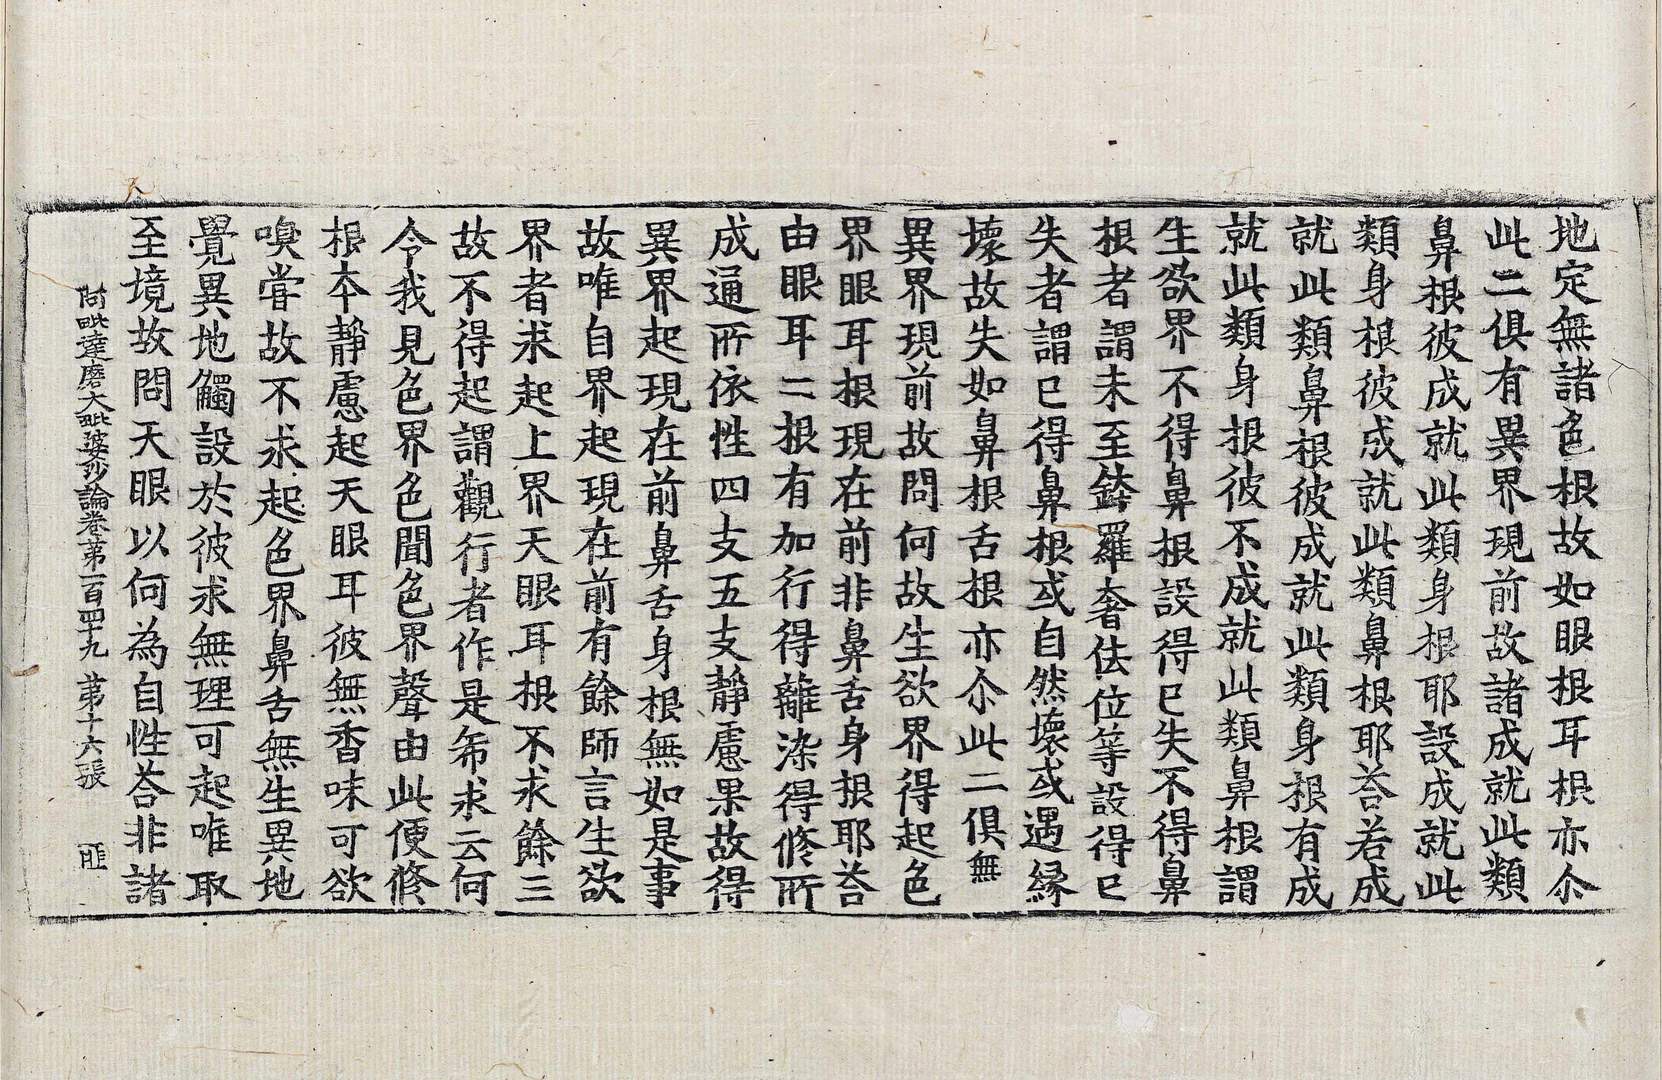 地定無諸色根故如眼根耳根亦尒
此二俱有異界現前故諸成就此類
鼻根彼成就此類身根耶設成就此
類身根彼成就此類鼻根耶荅若成
就此類鼻根彼成就此類身根有成
就此類身根彼不成就此類鼻根謂
生欲界不得鼻根設得已失不得鼻
根者謂未至鉢羅奢佉位等設得已
失者謂已得鼻根或自然壞或遇緣
壞故失如鼻根舌根亦尒此二俱無
異界現前故問何故生欲界得起色
界眼耳根現在前非鼻舌身根耶荅
由眼耳二根有加行得離染得修所
成通所依性四支五支靜慮果故得
異界起現在前鼻舌身根無如是事
故唯自界起現在前有餘師言生欲
界者求起上界天眼耳根不求餘三
故不得起謂觀行者作是希求云何
令我見色界色聞色界聲由此便修
根本靜慮起天眼耳彼無香味可欲
嗅甞故不求起色界鼻舌無生異地
覺異地觸設於彼求無理可起唯取
至境故問天眼以何為自性荅非諸
阿毗達磨大毗婆沙論卷苐一百四十九 苐十六張 匪